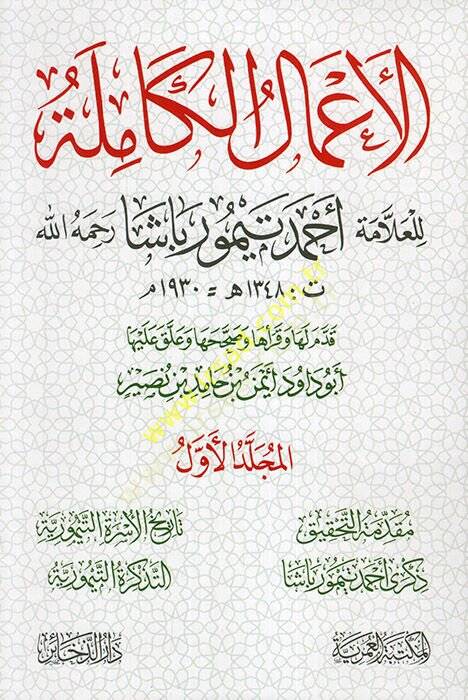 الأَعْمَالُ الكَامِلَةُ
للعَلَّامَة أحمد تيمور باشا رحمه الله
ت: ١٣٤٨هـ = ١٩٣٠م
قدَّم لها وقرأها وصححها وعلق عليها
أبو داود أيمن بن حامد بن نصير
المجلَّدُ الأوَّلُ
مقدمة التحقيق تاريخ الأسرة التيمورية
ذكرى أحمد تيمور باشا التذكرة التيمورية
المكتبة العمرية دار الذخائر